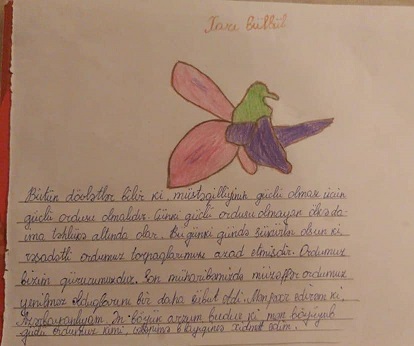 Xarı bülbül
Bütün dövlətlər bilir ki, müstəqilliyinin güclü olması üçün
güclü ordusu olmalıdır. Çünki güclü ordusu olmayan ölkə da-
ima təhlükə altında olar. Bu günki gündə şükürlər olsun ki
rəşadətli ordumuz torpaqlarımızı azad etmişdir. Ordumuz
bizim qürurumuzdur. Son müharibəmizdə müzəffər ordumuz
yenilməz olduqlarını bir daha sübut etdi. Mən fəxr edirəm ki,
Azərbaycanlıyam. Ən böyük arzum budur ki mən böyüyüb
güclü ordumuz kimi, xalqıma layiqincə xidmət edim.